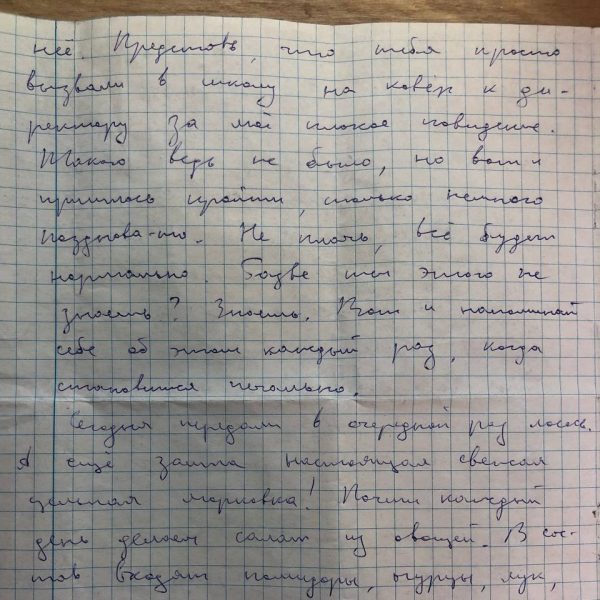 неё. Представь, что тебя просто
вызвали в школу на ковёр к ди-
ректору за моё плохое поведение.
Такого ведь не было, но вот и
пришлось пройти, только немного
поздновато. Не плачь, всё будет
нормально. Разве ты этого не
знаешь? Знаешь. Вот и напоминай
себе об этом каждый раз, когда
становится печально.
Сегодня передали в очередной раз лосось.
А ещё зашла настоящая свежая
цельная морковка! Почти каждый
день делаем салат из овощей. В сос-
тав входят помидоры, огурцы, лук,